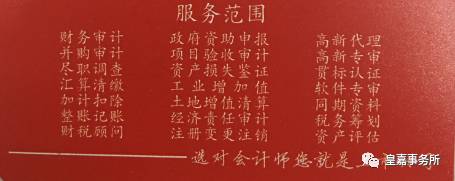 服务范围
财务审计 政府资助申报 高新代理
并购审计 项目验收审计 高新专审
尽职调查 资产损失鉴证 贯标认证
汇算清缴 工业增加值 软件专审
加计扣除 土地增值清算 同期资料
整账记账 经济责任审计 税务筹划
财税顾问 注册变更注销 资产评估
选对会计师您就是
皇嘉事务所